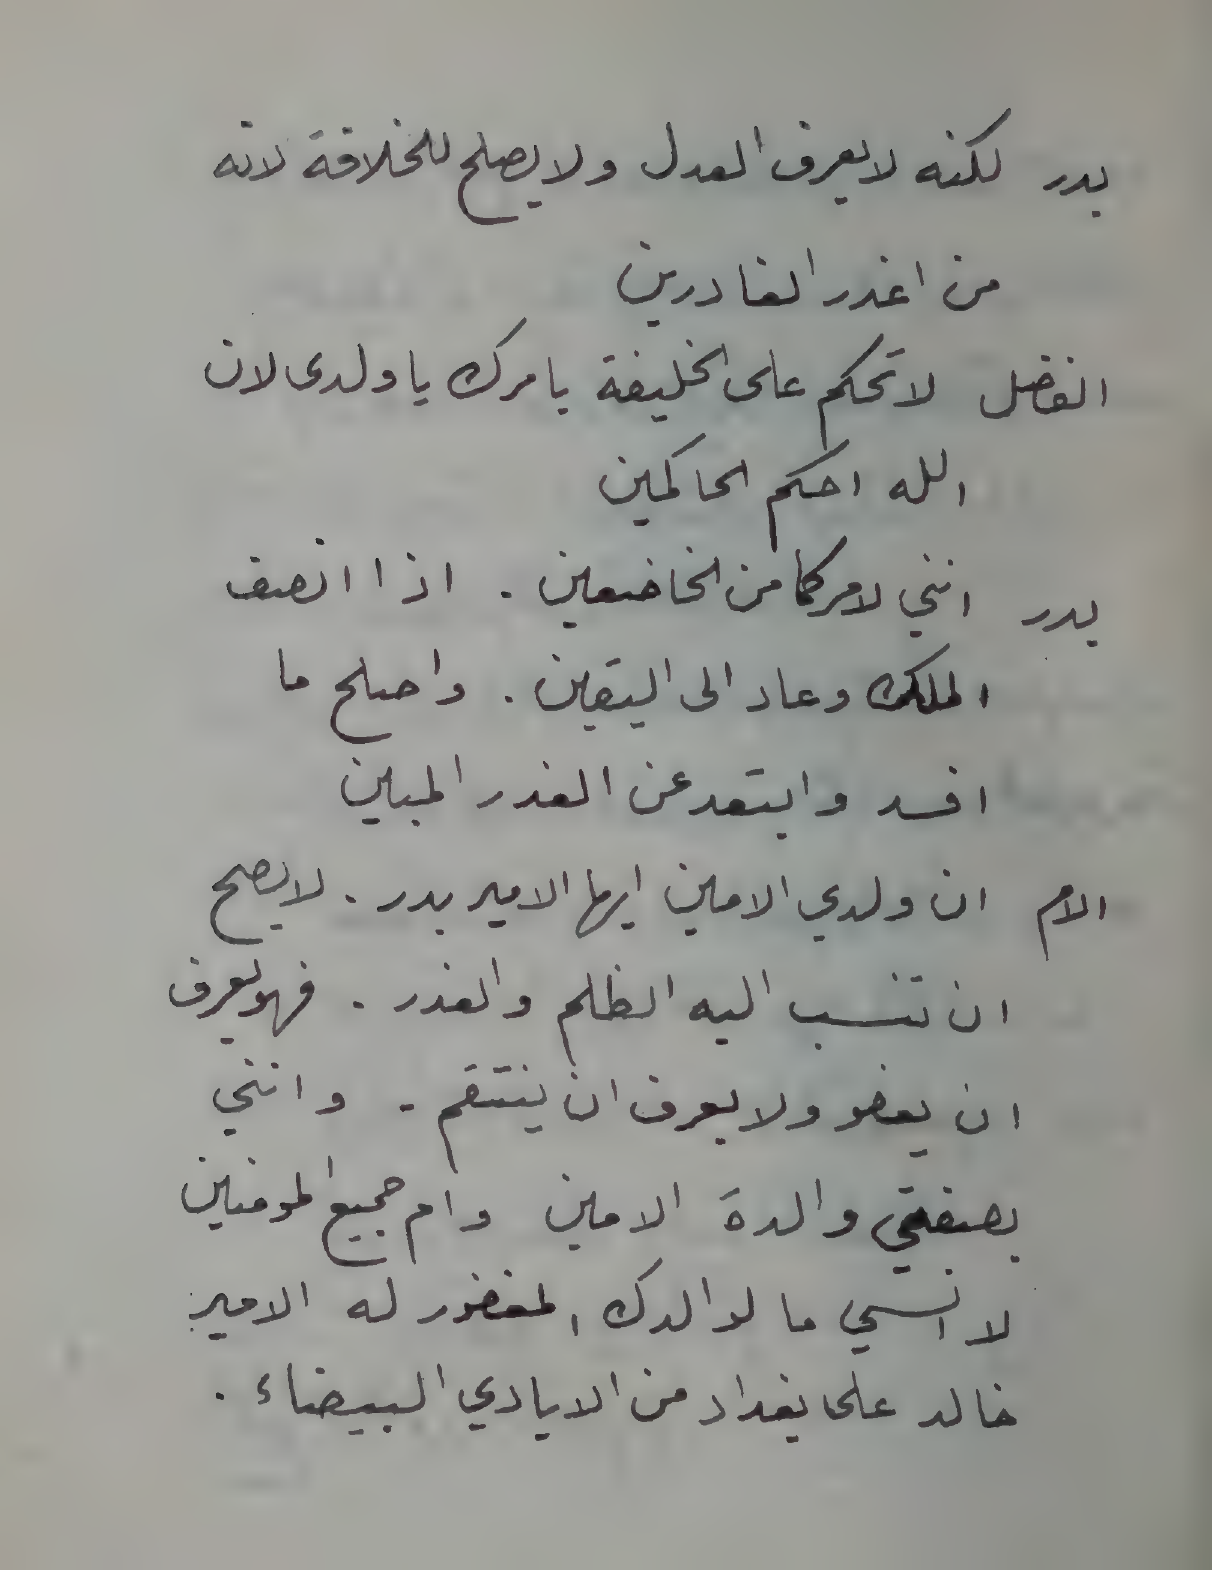 بدر لكنه لا يعرف العدل ولا يصلح للخلافة لانه
من اغدر الغادرين
الفضل لا تحكم على الخليفة بامرك يا ولدى لان
الله احكم الحاكمين
بدر انني لامركما من الخاضعين . اذا انصف
الملك وعاد الى اليقين . واصلح ما
افسد وابتعد عن الغدر المبين
الام ان ولدي الامين ايها الامير بدر . لا يصح
ان تنسب اليه الظلم والغدر . فهو يعرف
ان يعفو ولا يعرف ان ينتقم . وانني
بصفتي والدة الامين وام جميع المومنين
لا انسي ما لوالدك المغفور له الامير
خالد على بغداد من الايادي البيضاء .